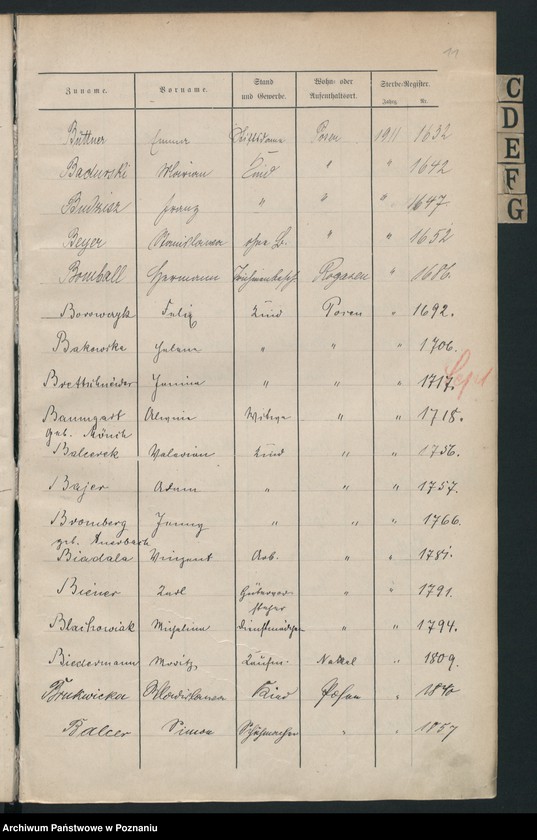 11
Zuname. Vorname. Stand und Gewerbe. Wohn- oder Aufenthaltsort. Sterbe-Register. Jahrg. Nr.
Büttner Emma Stiftsdame Posen 1911 1632
Badurski Marian Kind " " 1642
Budzisz Franz " " " 1647
Beyer Stanislawa ohne B. " " 1652
Bomball Hermann Rogasen " 1686.
Borowczyk Felix Kind Posen " 1692.
Bakowska Helene " " " 1706.
Brettschneider Janina " " " 1717.
Sept
Baumgart Witwe " " 1718.
geb. Mönch
Balcerek Valerian Kind " " 1756.
Bajer Adam " " " 1757.
Bromberg Jenny " " " 1766.
geb. Auerbach
Biadala Vinzent Arb. " " 1781.
Biener Karl Gütervor- " " 1791.
steher
Blachowiak Michalina Dienstmädchen " " 1794.
Biedermann Moritz Kaufm. Nakel " 1809.
Brukwicka Wladislawa Kind Posen " 1840
Balcer Simon Schuhmacher " " 1857
C
D
E
F
G
Archiwum Państwowe w Poznaniu